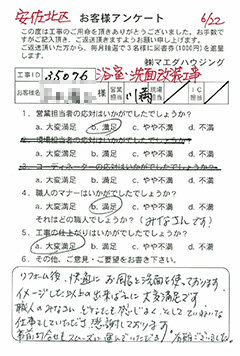 安佐北区 お客様アンケート 6/22
この度は工事のご用命を頂きありがとうございました。お手数で
すがご記入頂き、ご返送頂きますようお願い申し上げます。
ご返送頂いた方から、毎月抽選で3名様に図書券(1000円)を進呈
します。
㈱マエダハウジング
工事ID 35076 浴室・洗面改装工事
お客様名 様 営業担当 現場担当 IC担当
1. 営業担当者の応対はいかがでしたでしょうか?
a. 大変満足 b. 満足 c. やや不満 d. 不満
2. 現場担当者の応対はいかがでしたでしょうか?
a. 大変満足 b. 満足 c. やや不満 d. 不満
3. コーディネーターの応対はいかがでしたでしょうか?
a. 大変満足 b. 満足 c. やや不満 d. 不満
4. 職人のマナーはいかがでしたでしょうか?
a. 大変満足 b. 満足 c. やや不満 d. 不満
それはどの職人でしょうか? (みなさんです!)
5. 工事の仕上がりはいかがでしたでしょうか?
a. 大変満足 b. 満足 c. やや不満 d. 不満
6. その他、ご意見・ご要望をお書き下さい。
リフォーム後、快適にお風呂と洗面を使っております。
イメージした以上の出来ばえに大変満足です。
職人のみなさん、とても感じよく、そしてていねいな
仕事をしていただき感謝しております